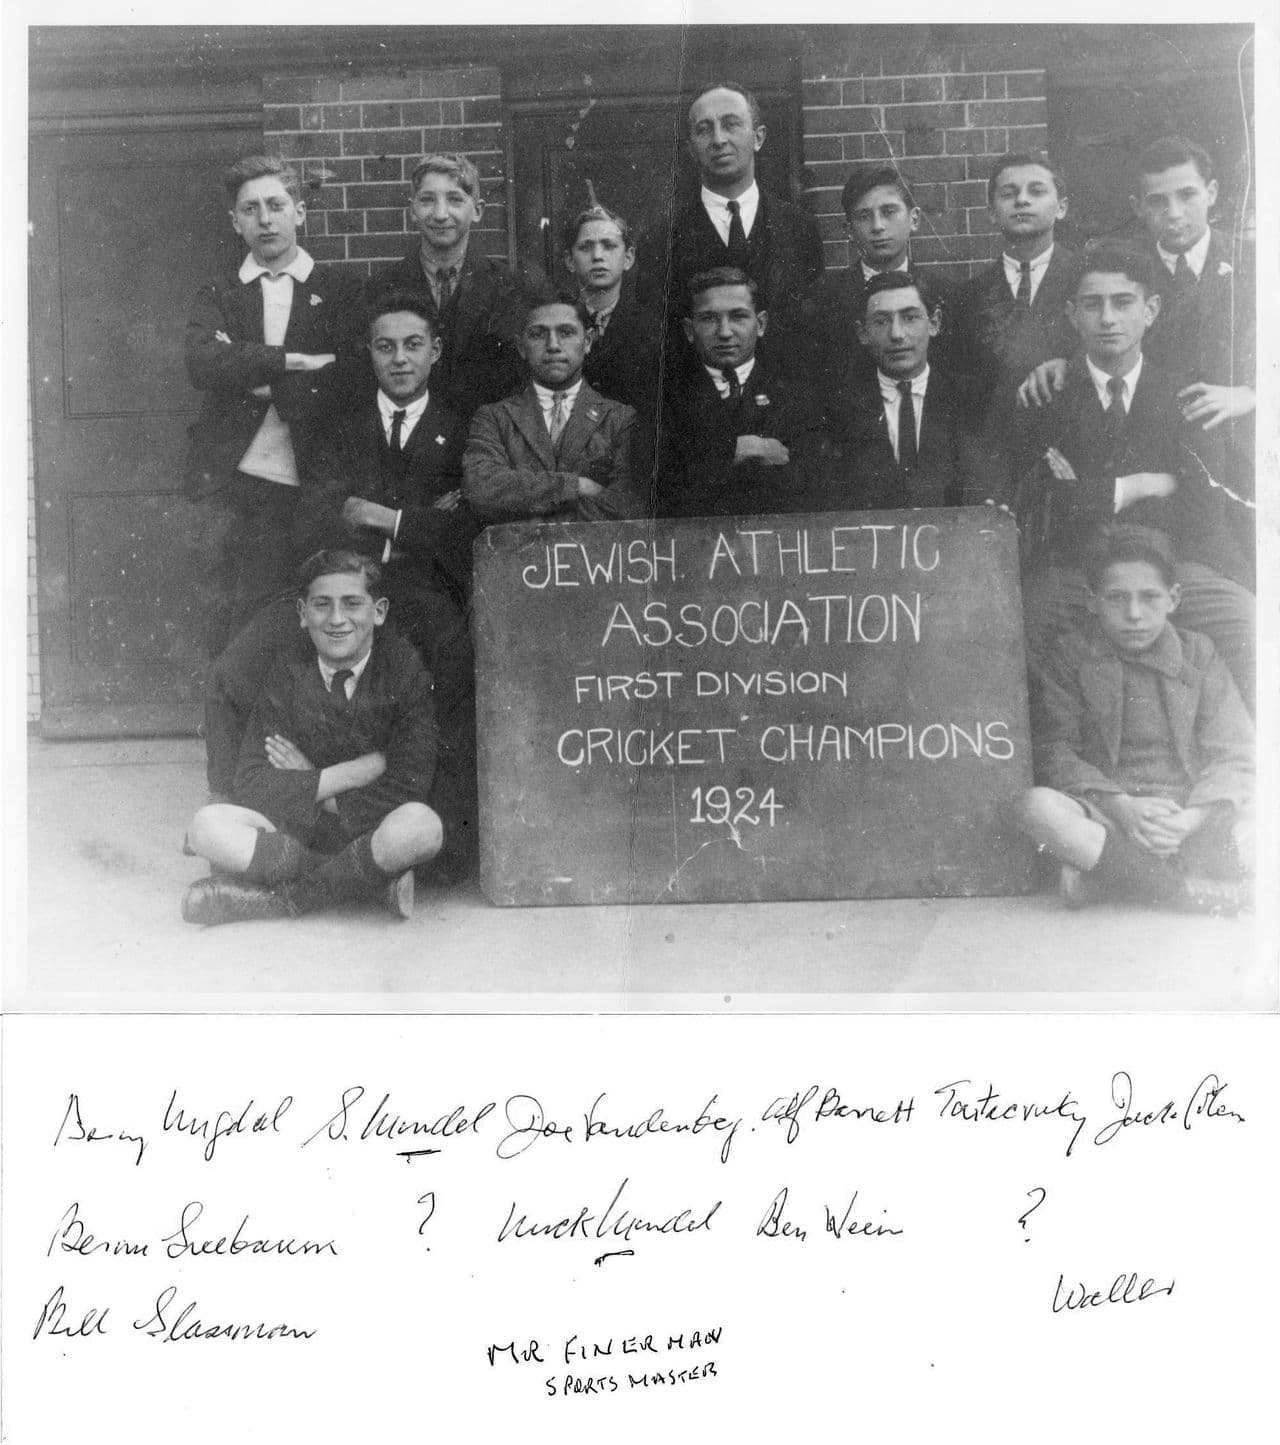 JEWISH. ATHLETIC
ASSOCIATION
FIRST DIVISION
CRICKET CHAMPIONS
1924
Migdal S. Mendel Joe Vandenberg. Alf Barnett Jack Cohen
? Mick Mendel Ben Wein ?
Bill Glassman Waller
MR FINERMAN
SPORTS MASTER